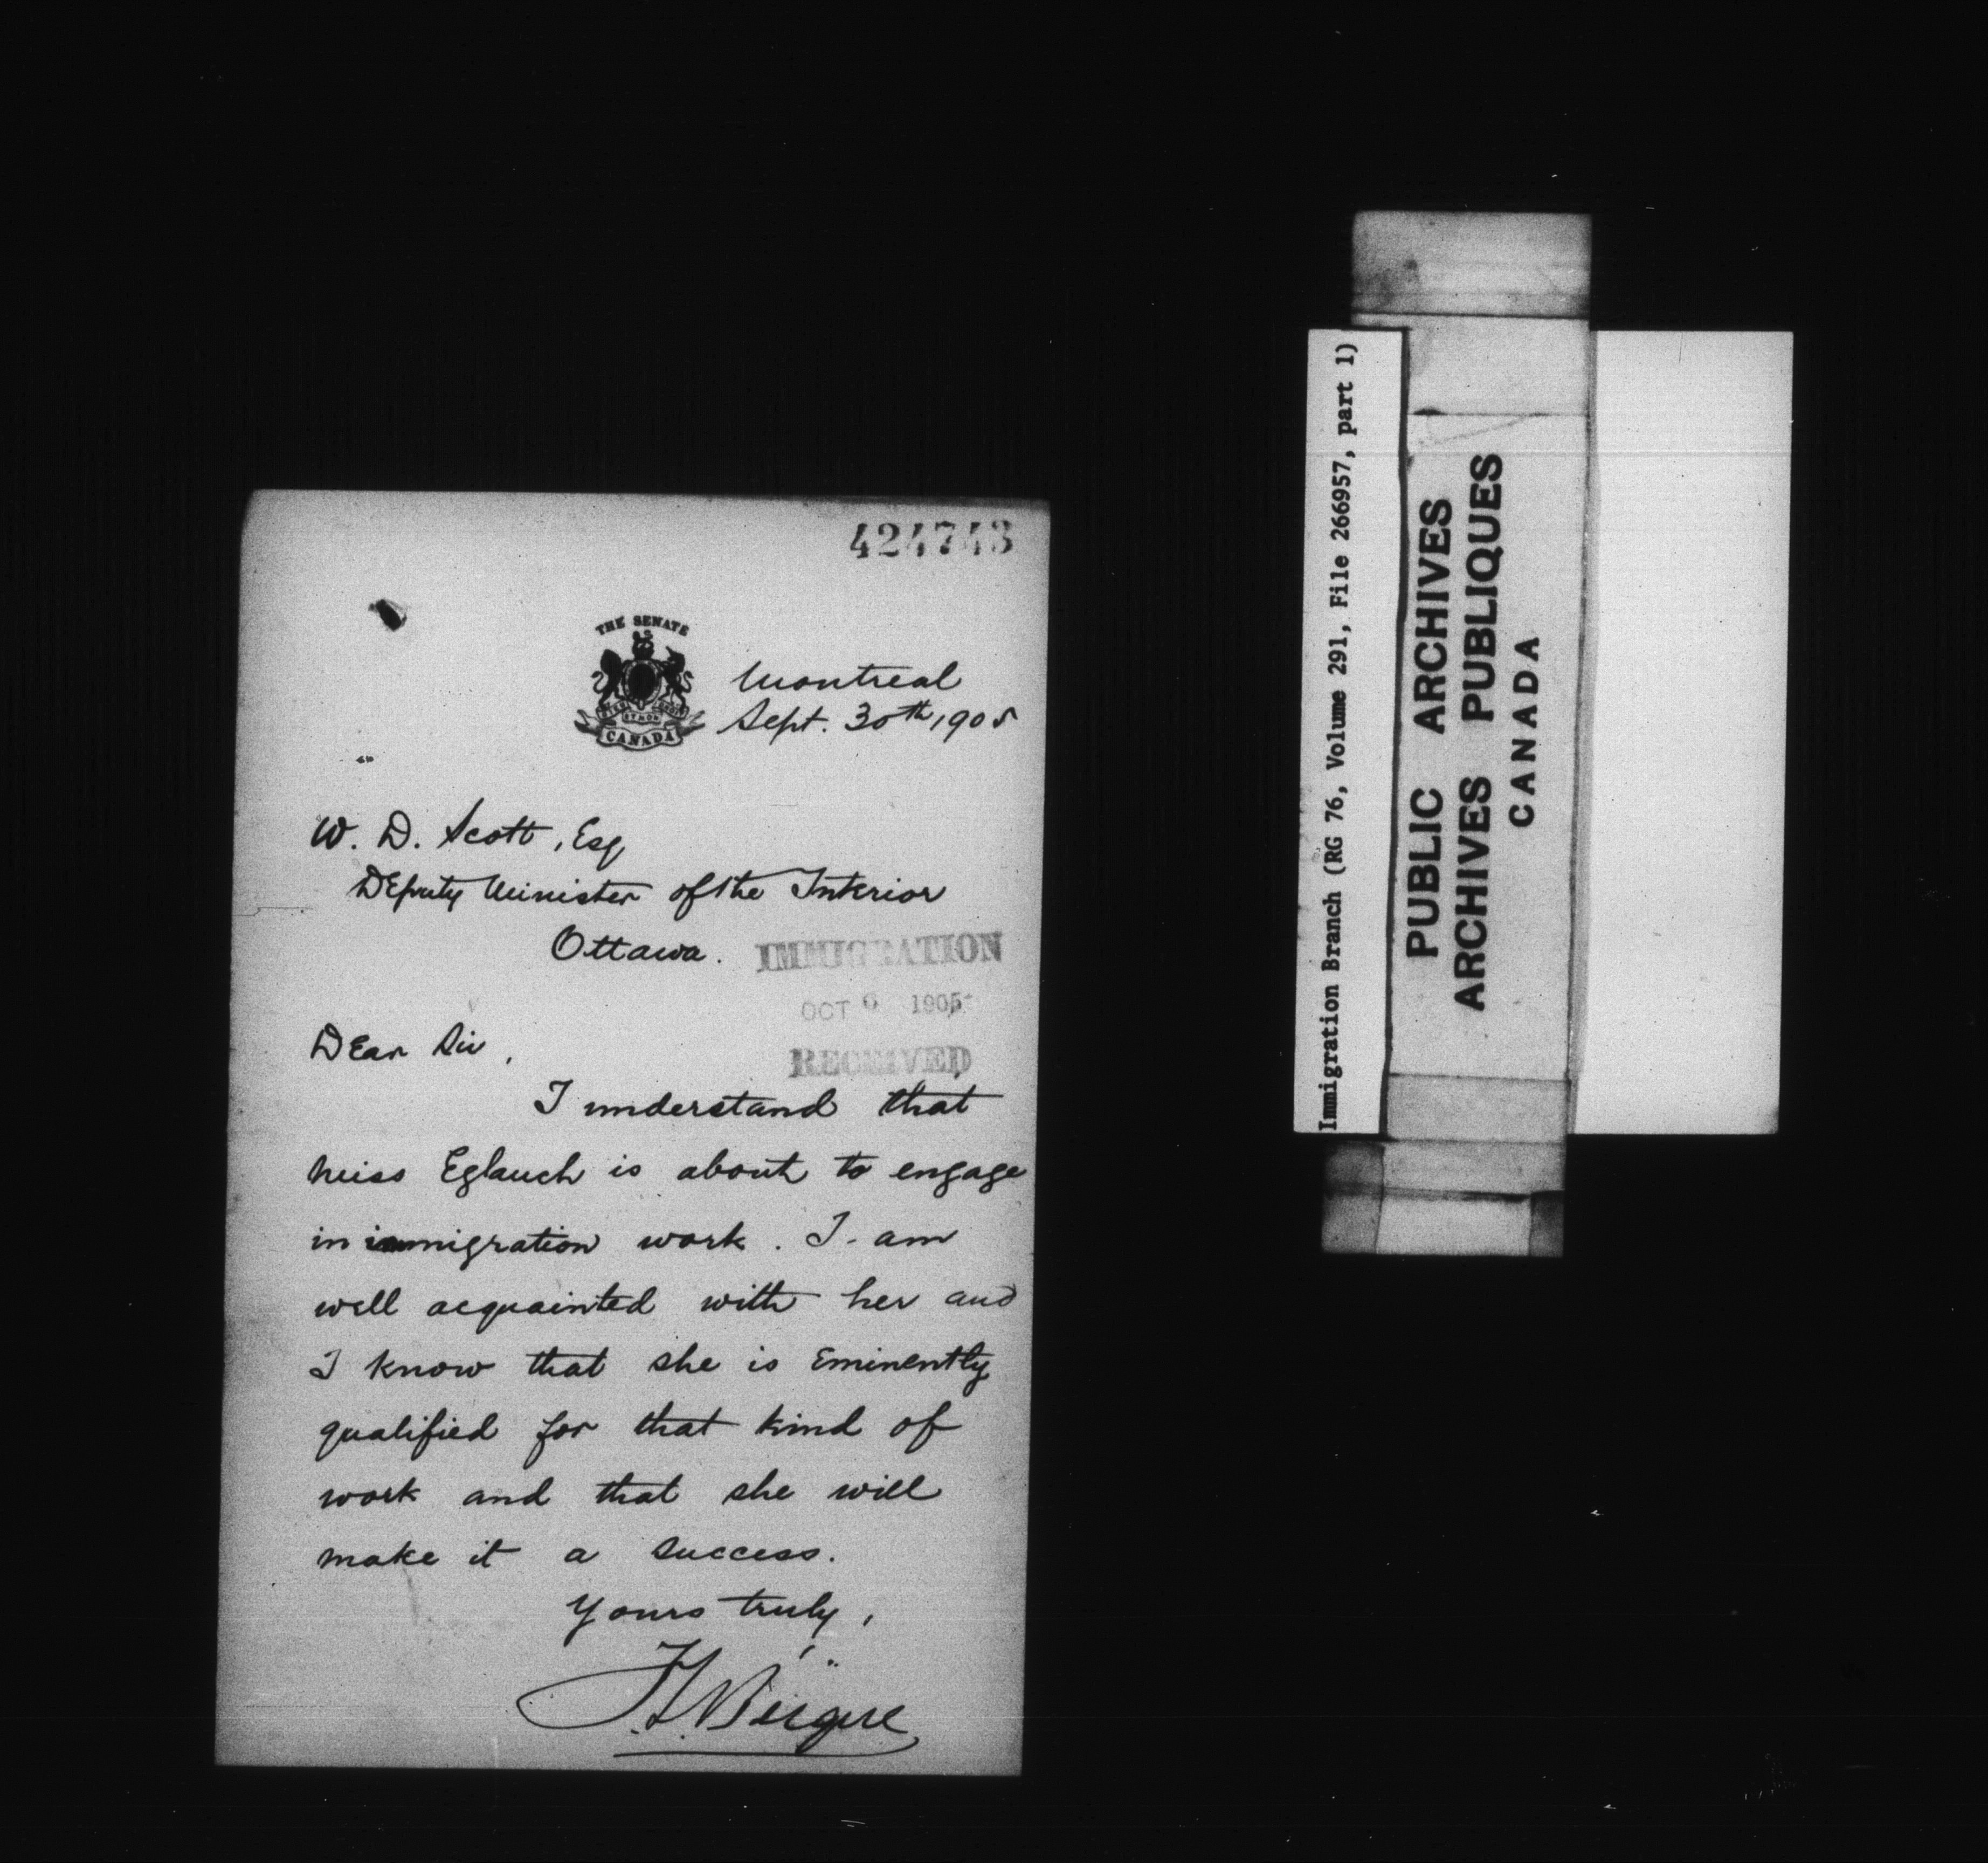 424743
THE SENATE
CANADA
Montreal
Sept. 30th, 1905
W. D. Scott, Esq
Deputy Minister of the Interior
Ottawa.
IMMIGRATION
OCT 6 1905
RECEIVED
Dear Sir,
I understand that
Miss Eglauch is about to engage
in immigration work. I am
well acquainted with her and
I know that she is eminently
qualified for that kind of
work and that she will
make it a success.
Yours truly,
F. L. Béique
Immigration Branch (RG 76, Volume 291, File 266957, part 1)
PUBLIC ARCHIVES
ARCHIVES PUBLIQUES
CANADA